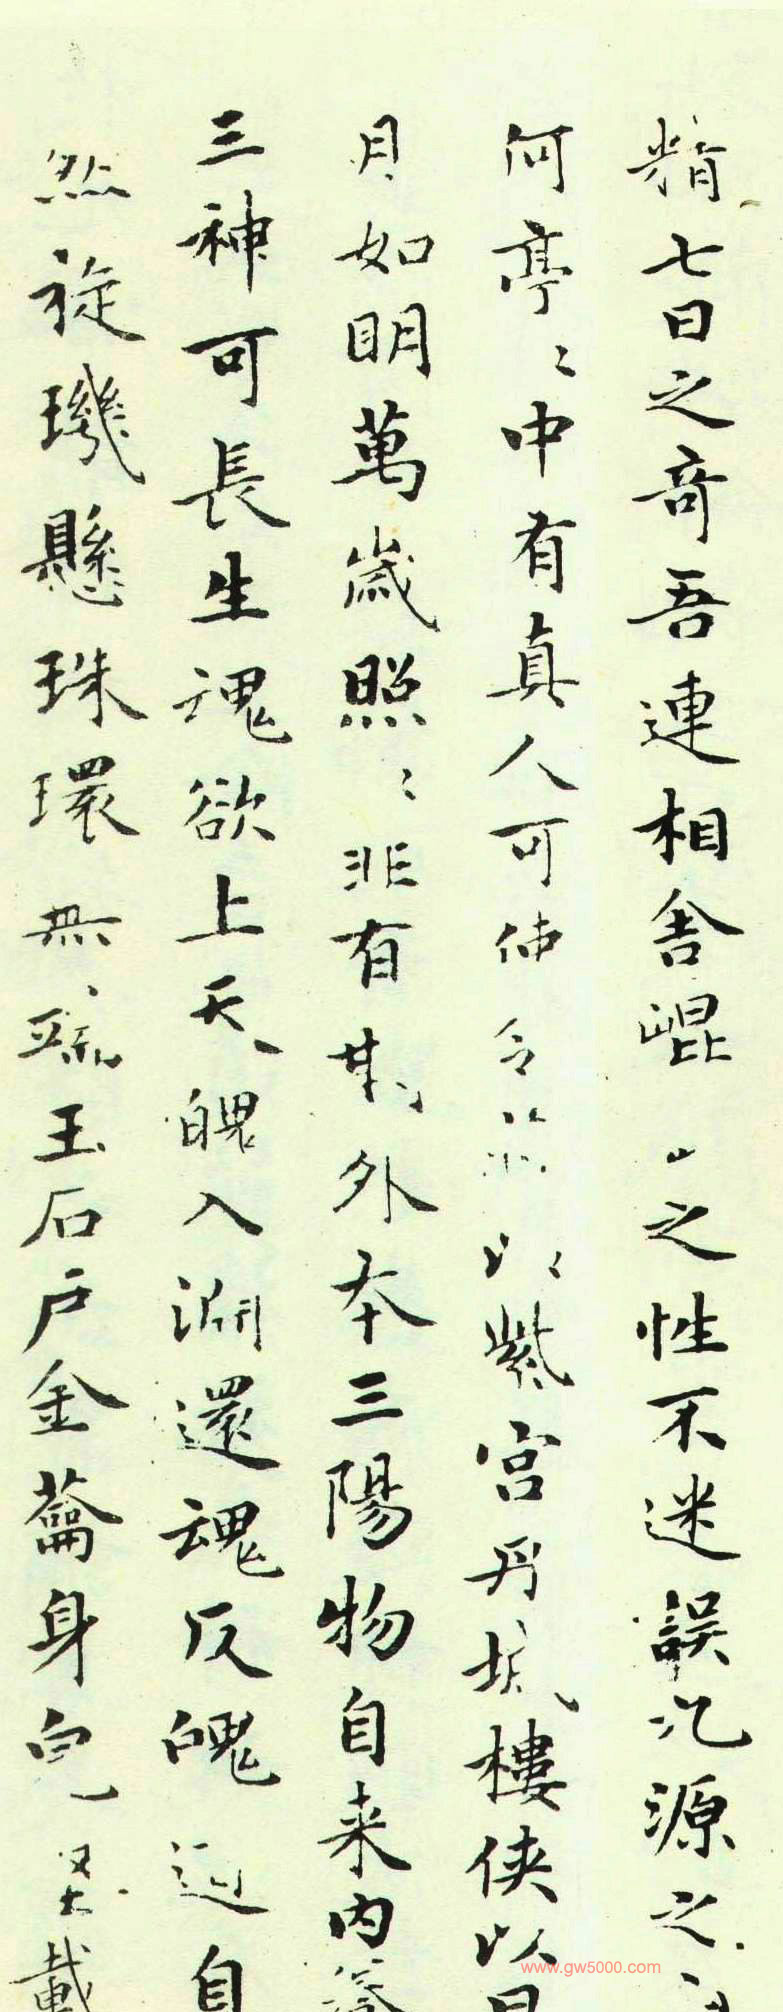 精七日之奇吾連相舍崐之性不迷誤九源之
何亭〻中有真人可使令以紫宫丹城樓俠以日
月如明萬歲照〻非有期外本三陽物自来内
三神可長生魂欲上天魄入淵還魂反魄道自
然旋璣懸珠環無端玉石户金蘥身完堅載
www.gw5000.com